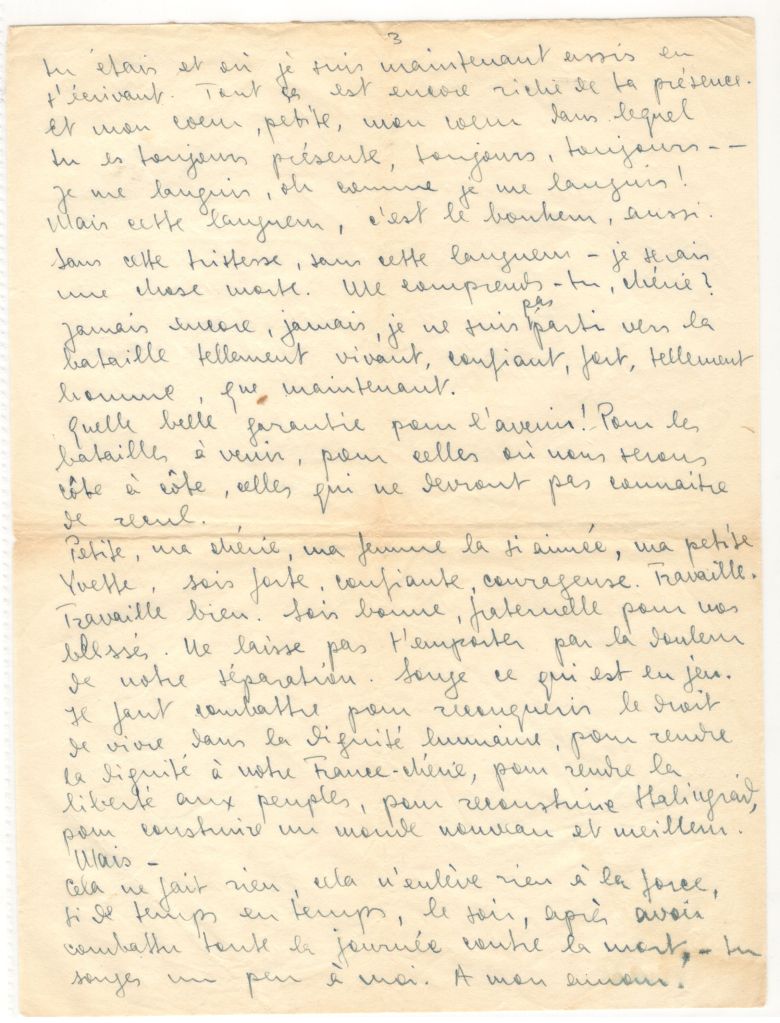 3
tu étais et où je suis maintenant assis en
t'écrivant. Tout ça est encore riche de ta présence.
Et mon coeur, petite, mon coeur dans lequel
tu es toujours présente, toujours, toujours --
Je me languis, oh comme je me languis!
Mais cette langueur, c'est le bonheur, aussi.
Sans cette tristesse, sans cette langueur - je serais
une chose morte. Me comprends-tu, chérie?
pas
Jamais encore, jamais, je ne suis parti vers la
bataille tellement vivant, confiant, fort, tellement
homme, que maintenant.
Quelle belle garantie pour l'avenir! Pour les
batailles à venir, pour celles où nous serons
côte à côte, celles qui ne devront pas connaitre
de recul.
Petite, ma chérie, ma femme la si aimée, ma petite
Yvette, sois forte, confiante, courageuse. Travaille.
Travaille bien. Sois bonne, fraternelle pour nos
blessés. Ne laisse pas t'emporter par la douleur
de notre séparation. Songe ce qui est en jeu.
Il faut combattre pour reconquerir le droit
de vivre dans la dignité humaine, pour rendre
la dignité à notre France-chérie, pour rendre la
liberté aux peuples, pour reconstruire Stalingrad,
pour construire un monde nouveau et meilleur.
Mais -
Cela ne fait rien, cela n'enlève rien à la force,
si de temps en temps, le soir, après avoir
combattu toute la journée contre la mort, - tu
songes un peu à moi. A mon amour.